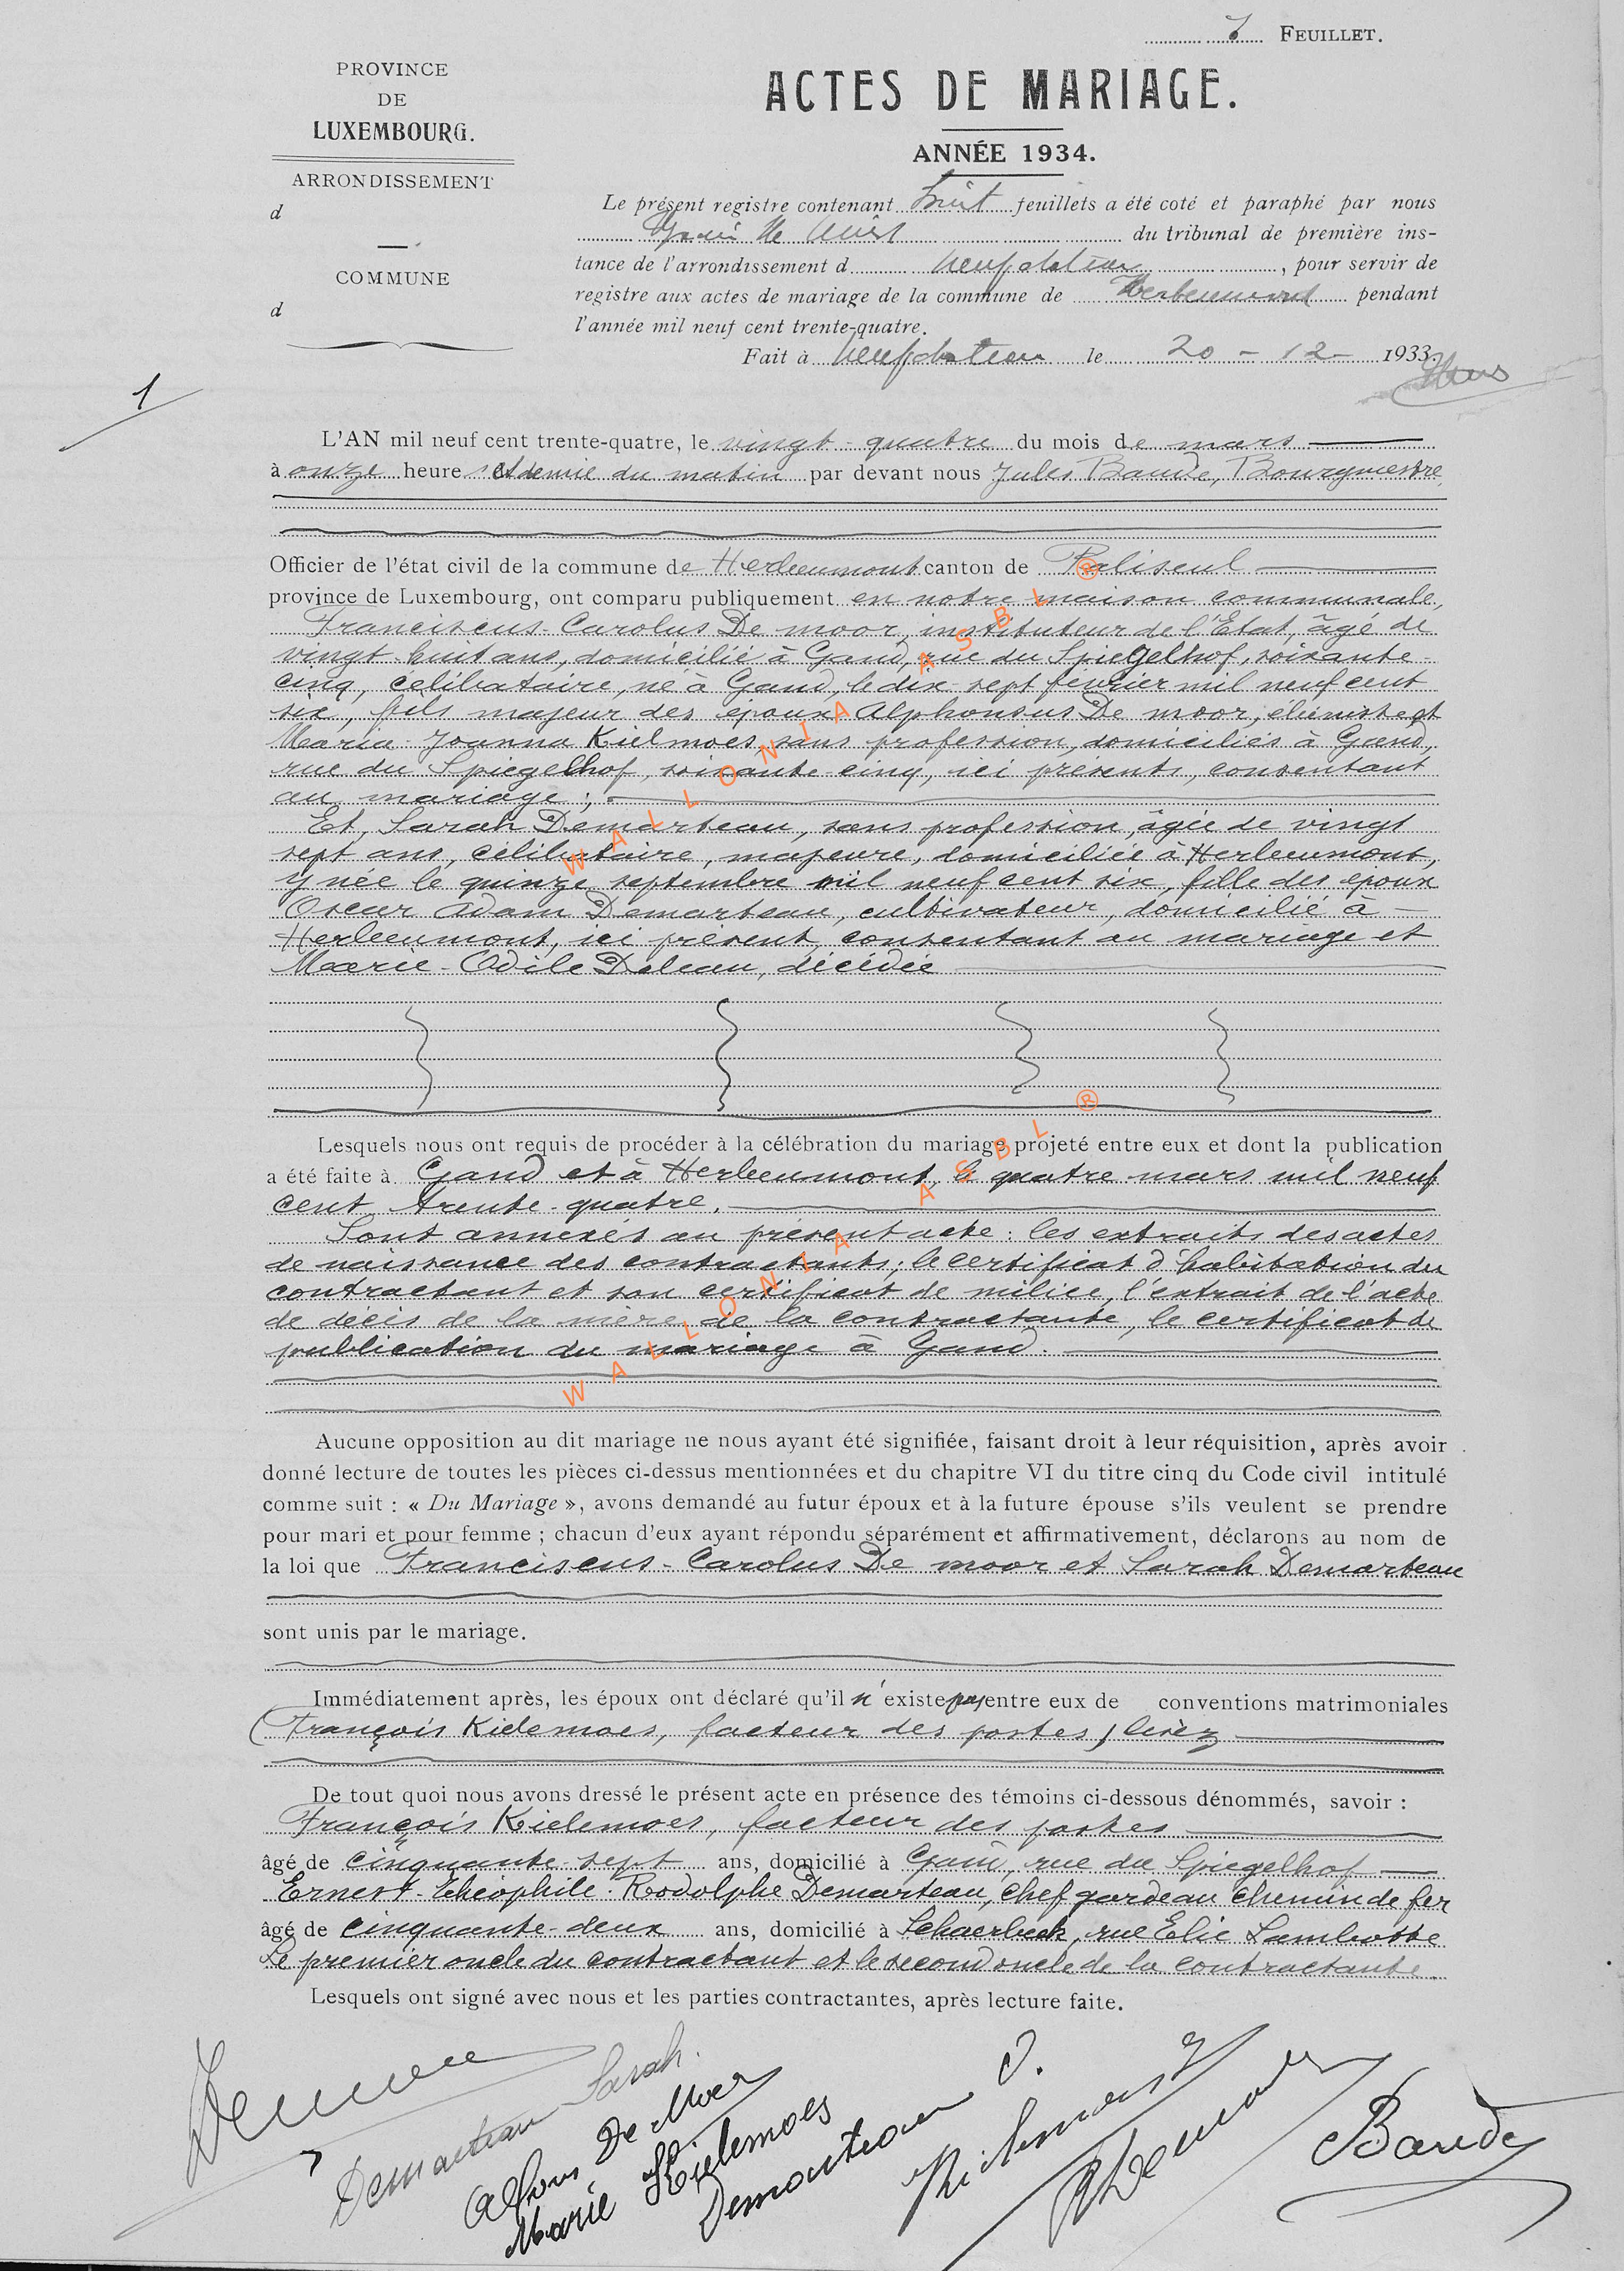 7 FEUILLET.
PROVINCE
DE
LUXEMBOURG.
ARRONDISSEMENT
d
COMMUNE
d
ACTES DE MARIAGE.
ANNÉE 1934.
Le présent registre contenant huit feuillets a été coté et paraphé par nous
du tribunal de première ins-
tance de l'arrondissement d Neufchateau, pour servir de
registre aux actes de mariage de la commune de Herbeumont pendant
l'année mil neuf cent trente-quatre.
Fait à Neufchateau le 20 - 12 - 1933.
1
L'AN mil neuf cent trente-quatre, le vingt-quatre du mois de mars
à onze heures et demie du matin par devant nous Jules Baude, Bourgmestre,
Officier de l'état civil de la commune de Herbeumont canton de Paliseul
province de Luxembourg, ont comparu publiquement en notre maison communale,
Franciscus-Carolus De moor, instituteur de l'Etat, âgé de
vingt-huit ans, domicilié à Gand, rue du Spiegelhof, soixante-
cinq, célibataire, né à Gand, le dix-sept février mil neuf cent
six, fils majeur des époux Alphonsus De moor, ébéniste et
Maria-Joanna Kielmoes, sans profession, domiciliés à Gand,
rue du Spiegelhof, soixante-cinq, ici présents, consentant
au mariage ;
Et, Sarah Demarteau, sans profession, âgée de vingt
sept ans, célibataire, majeure, domiciliée à Herbeumont,
y née le quinze septembre mil neuf cent six, fille des époux
Oscar Adam Demarteau, cultivateur, domicilié à
Herbeumont, ici présent, consentant au mariage et
Marie-Odile Deleau, décédée
Lesquels nous ont requis de procéder à la célébration du mariage projeté entre eux et dont la publication
a été faite à Gand et à Herbeumont, le quatre mars mil neuf
cent trente-quatre.
Sont annexés au présent acte : les extraits des actes
de naissance des contractants ; le certificat d'habitation du
contractant et son certificat de milice, l'extrait de l'acte
de décès de la mère de la contractante, le certificat de
publication du mariage à Gand.
Aucune opposition au dit mariage ne nous ayant été signifiée, faisant droit à leur réquisition, après avoir
donné lecture de toutes les pièces ci-dessus mentionnées et du chapitre VI du titre cinq du Code civil intitulé
comme suit : « Du Mariage », avons demandé au futur époux et à la future épouse s'ils veulent se prendre
pour mari et pour femme ; chacun d'eux ayant répondu séparément et affirmativement, déclarons au nom de
la loi que Franciscus-Carolus De moor et Sarah Demarteau
sont unis par le mariage.
Immédiatement après, les époux ont déclaré qu'il n'existe pas entre eux de conventions matrimoniales
(François Kielemoes, facteur des postes)
De tout quoi nous avons dressé le présent acte en présence des témoins ci-dessous dénommés, savoir :
François Kielemoes, facteur des postes
âgé de cinquante-sept ans, domicilié à Gand, rue du Spiegelhof
Ernest-Théophile-Rodolphe Demarteau, chef garde au chemin de fer
âgé de cinquante-deux ans, domicilié à Schaerbeek, rue Elie Lambotte
Le premier oncle du contractant et le second oncle de la contractante.
Lesquels ont signé avec nous et les parties contractantes, après lecture faite.
Demarteau Sarah.
Alfons De Moor
Marie Kielemoes
Demarteau O.
Kielemoes F
Baude
WALLONIA ASBL ®
WALLONIA ASBL ®